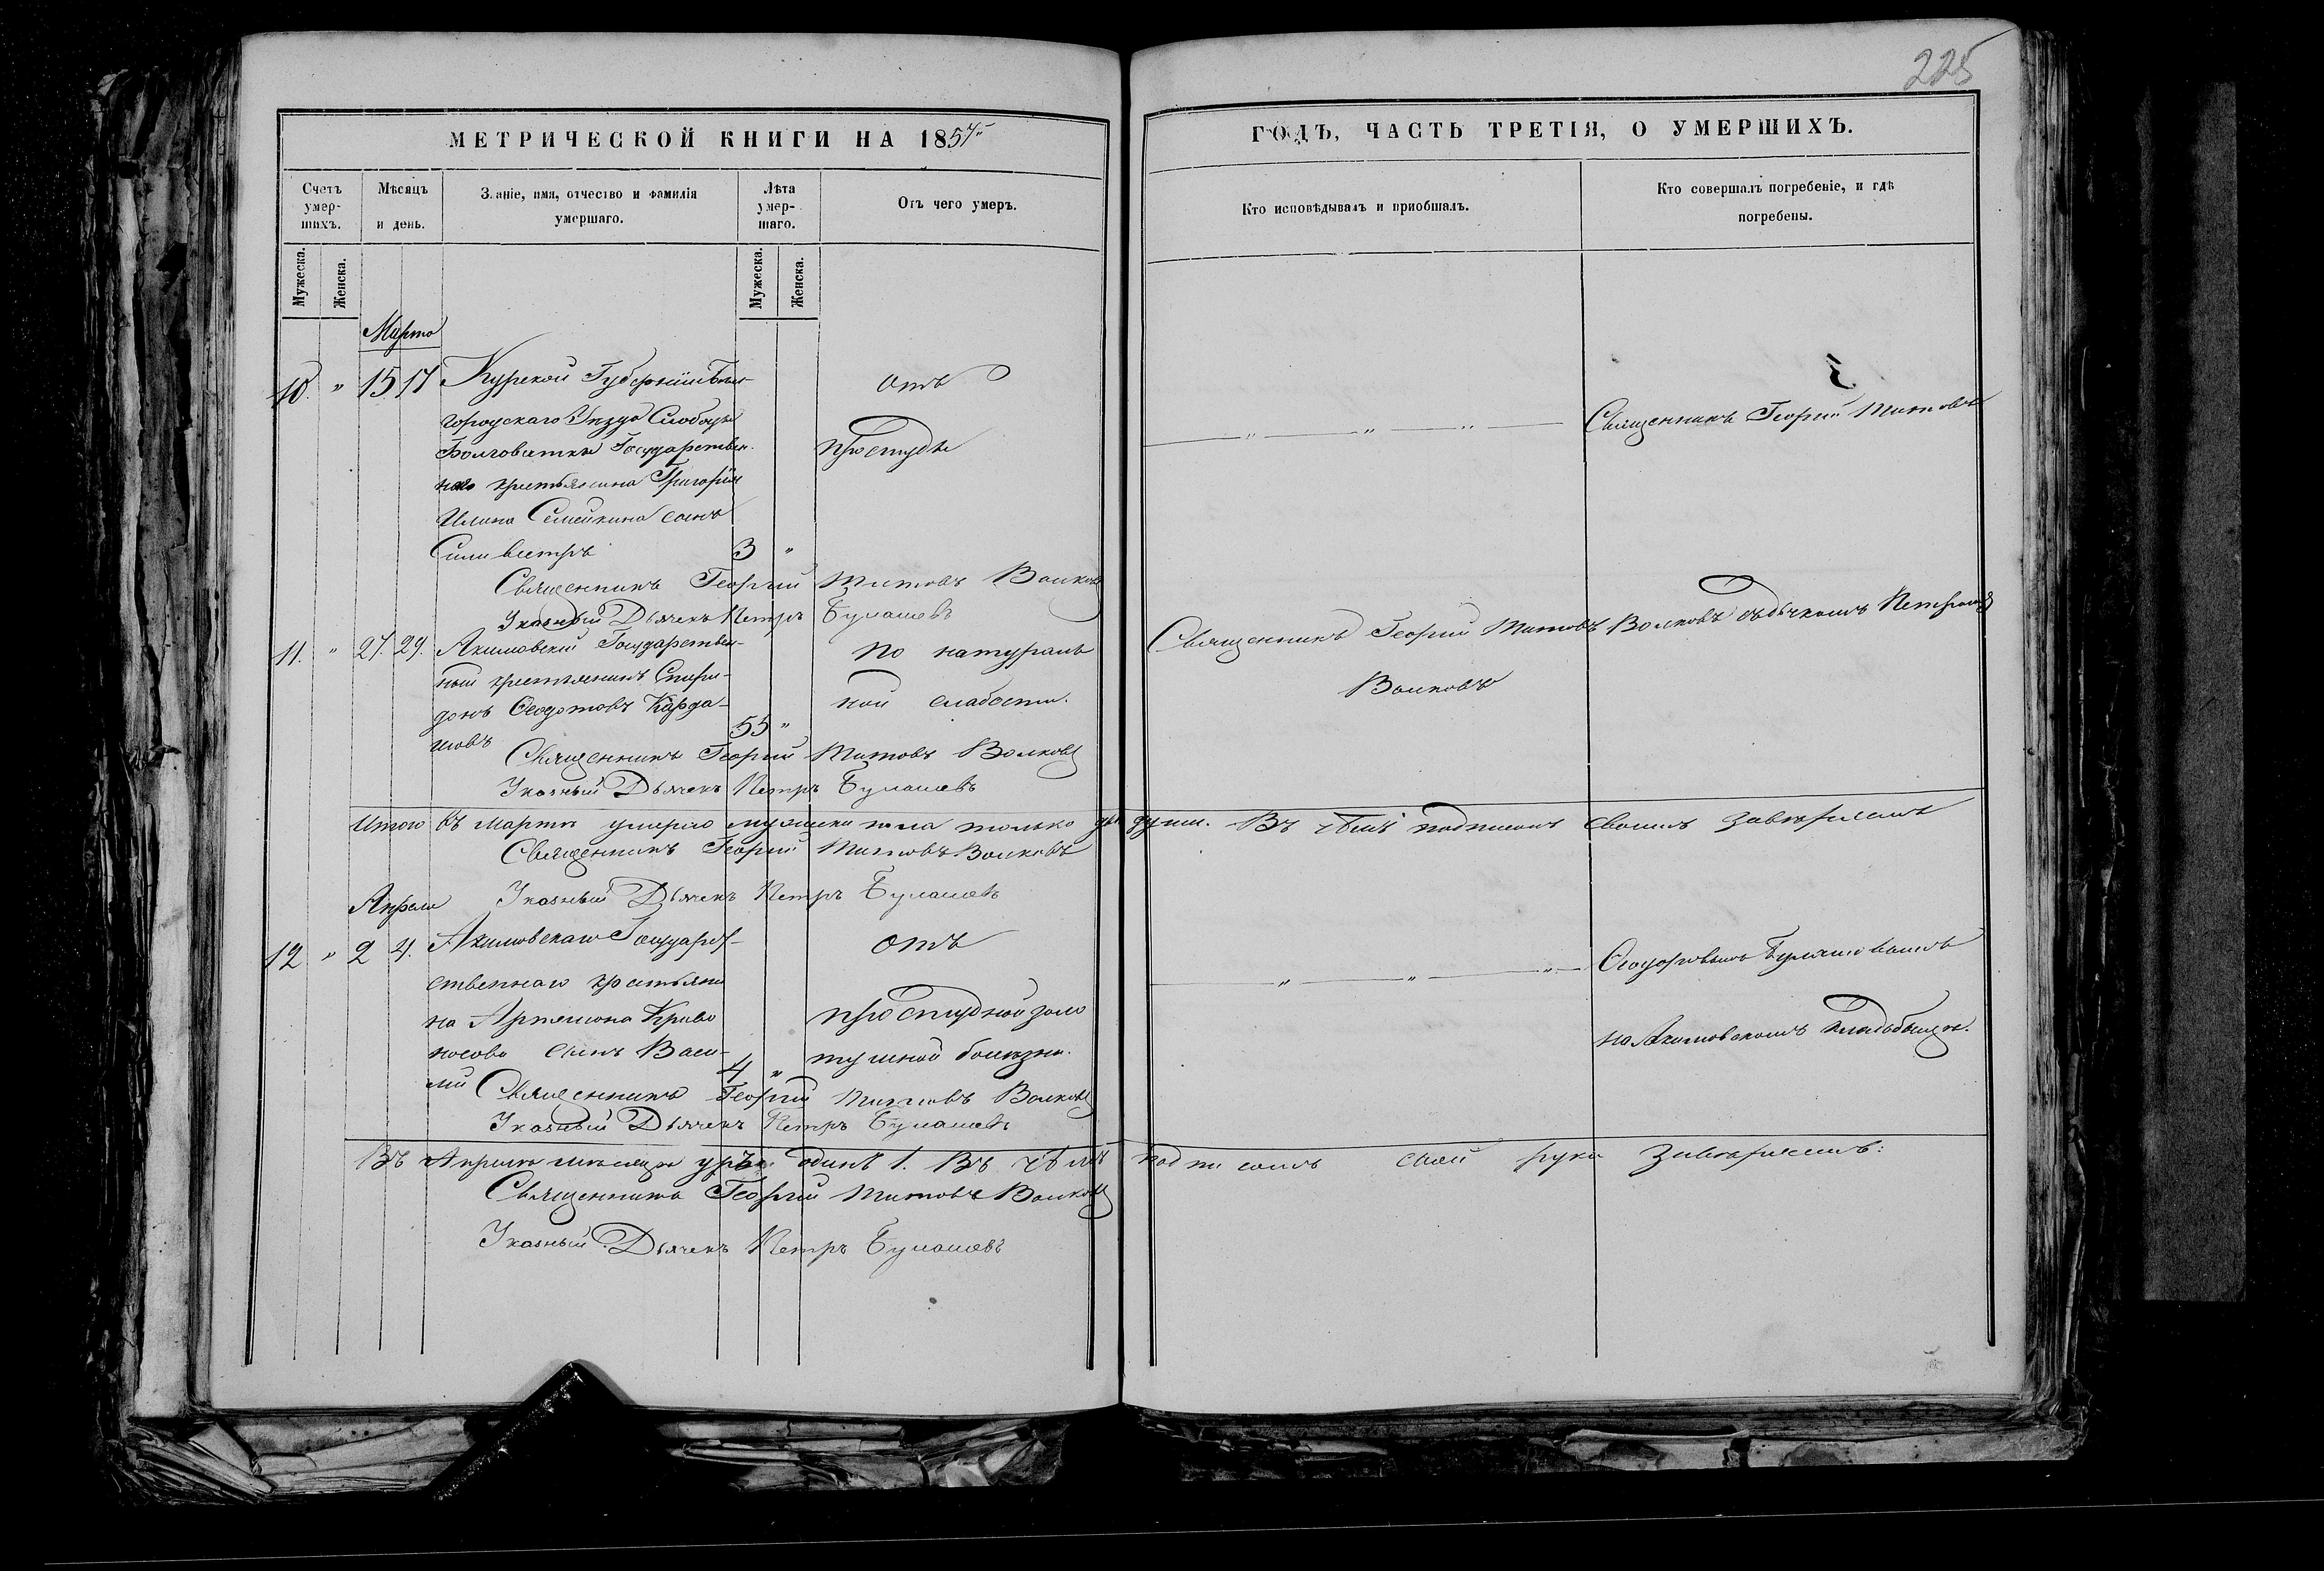 225
МЕТРИЧЕСКОЙ КНИГИ НА 1857
ГОДЪ, ЧАСТЬ ТРЕТІЯ, О УМЕРШИХЪ.
Счетъ умер-шихъ.
Мѣсяцъ и день.
Званіе, имя, отчество и фамилія умершаго.
Лѣта умер-шаго.
Отъ чего умеръ.
Кто исповѣдывалъ и пріобщалъ.
Кто совершалъ погребеніе, и гдѣ погребены.
Мужеска.
Женска.
Мужеска.
Женска.
Марта
10. " 15 17 Курской Губерніи Бѣл-
городскаго Уѣзда Слободы
Государствен-
наго крестьянина Григорія
Сынъ
Силивестръ 3 "
отъ
простуды
Священникъ Георгій Титовъ
Священникъ Георгій Титовъ Волковъ
Указный Дьячекъ Петръ Булашевъ
11. " 27. 29. Акимовскій Государствен-
ный крестьянинъ Спири-
донъ Ѳеодотовъ Карда-
шовъ 55 "
по натураль
ной слабости.
Священникъ Георгій Титовъ Волковъ съ дьячкомъ Петромъ
Волковъ
Священникъ Георгій Титовъ Волковъ
Указный Дьячекъ Петръ Булашевъ
Итого въ Мартѣ умерло мужеска пола только двѣ души. Въ чемъ подписомъ своимъ завѣряемъ
Священникъ Георгій Титовъ Волковъ
Указный Дьячекъ Петръ Булашевъ
Апреля
12 " 2 4. Акимовскаго Государ-
ственнаго крестьяни
на Артемона Криво
носова сынъ Васи-
лій 4 "
отъ
простудной золо
тушной болѣзни.
Булашевымъ
на Акимовскомъ кладбищѣ.
Священникъ Георгій Титовъ Волковъ
Указный Дьячекъ Петръ Булашевъ
Въ Апрелѣ мѣсяцѣ одинъ 1. Въ чемъ подписомъ своей руки завѣряемъ:
Священникъ Георгій Титовъ Волковъ
Указный Дьячекъ Петръ Булашевъ